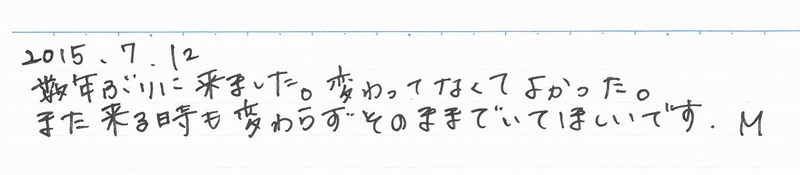 2015.7.12
数年ぶりに来ました。変わってなくてよかった。
また来る時も変わらずそのままでいてほしいです. M